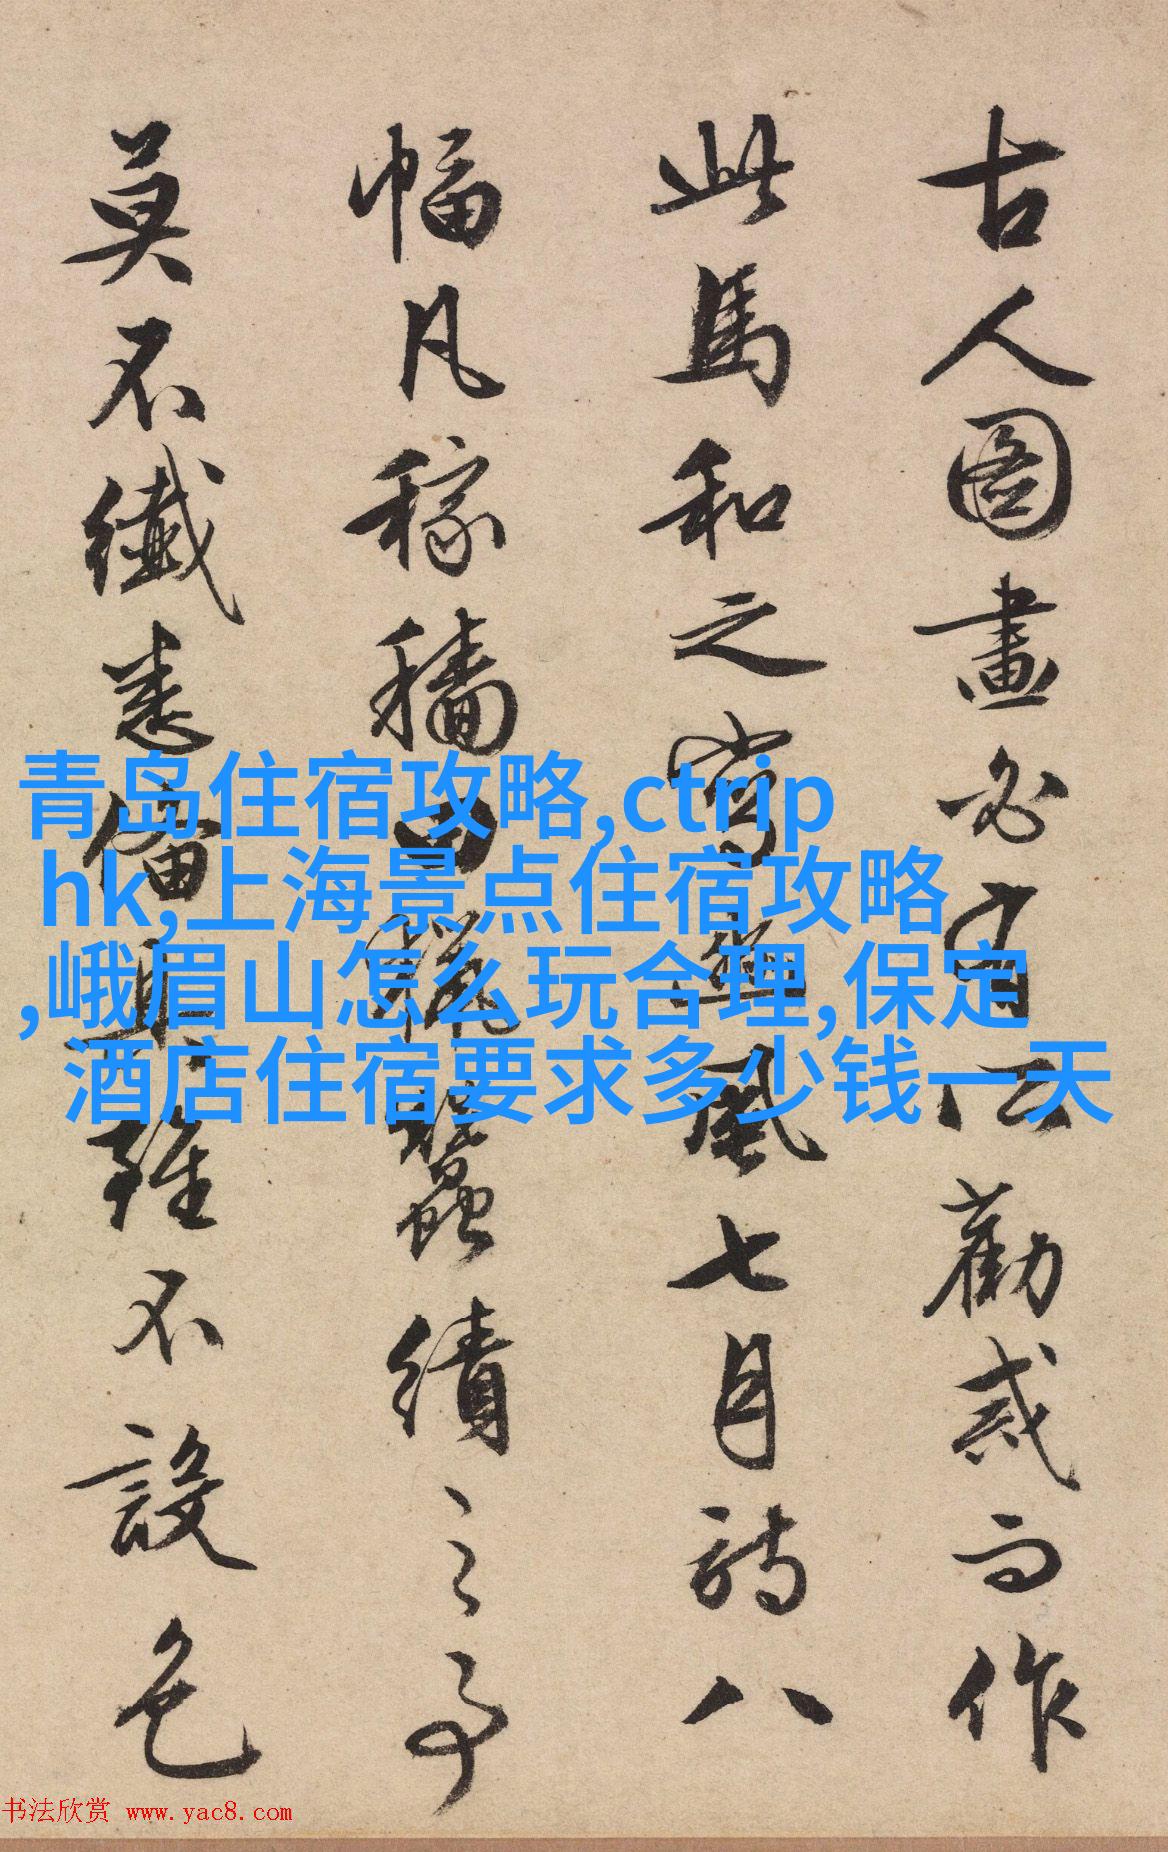 古人圖畫必有所勸戒而作
此馬和之寫豳風七月詩八
幅凡稼穡田獵蠶績之事
莫不纖悉備具雖不設色
青岛住宿攻略,ctrip
hk,上海景点住宿攻略
,峨眉山怎么玩合理,保定
酒店住宿要求多少钱一天
书法欣赏 www.yac8.com